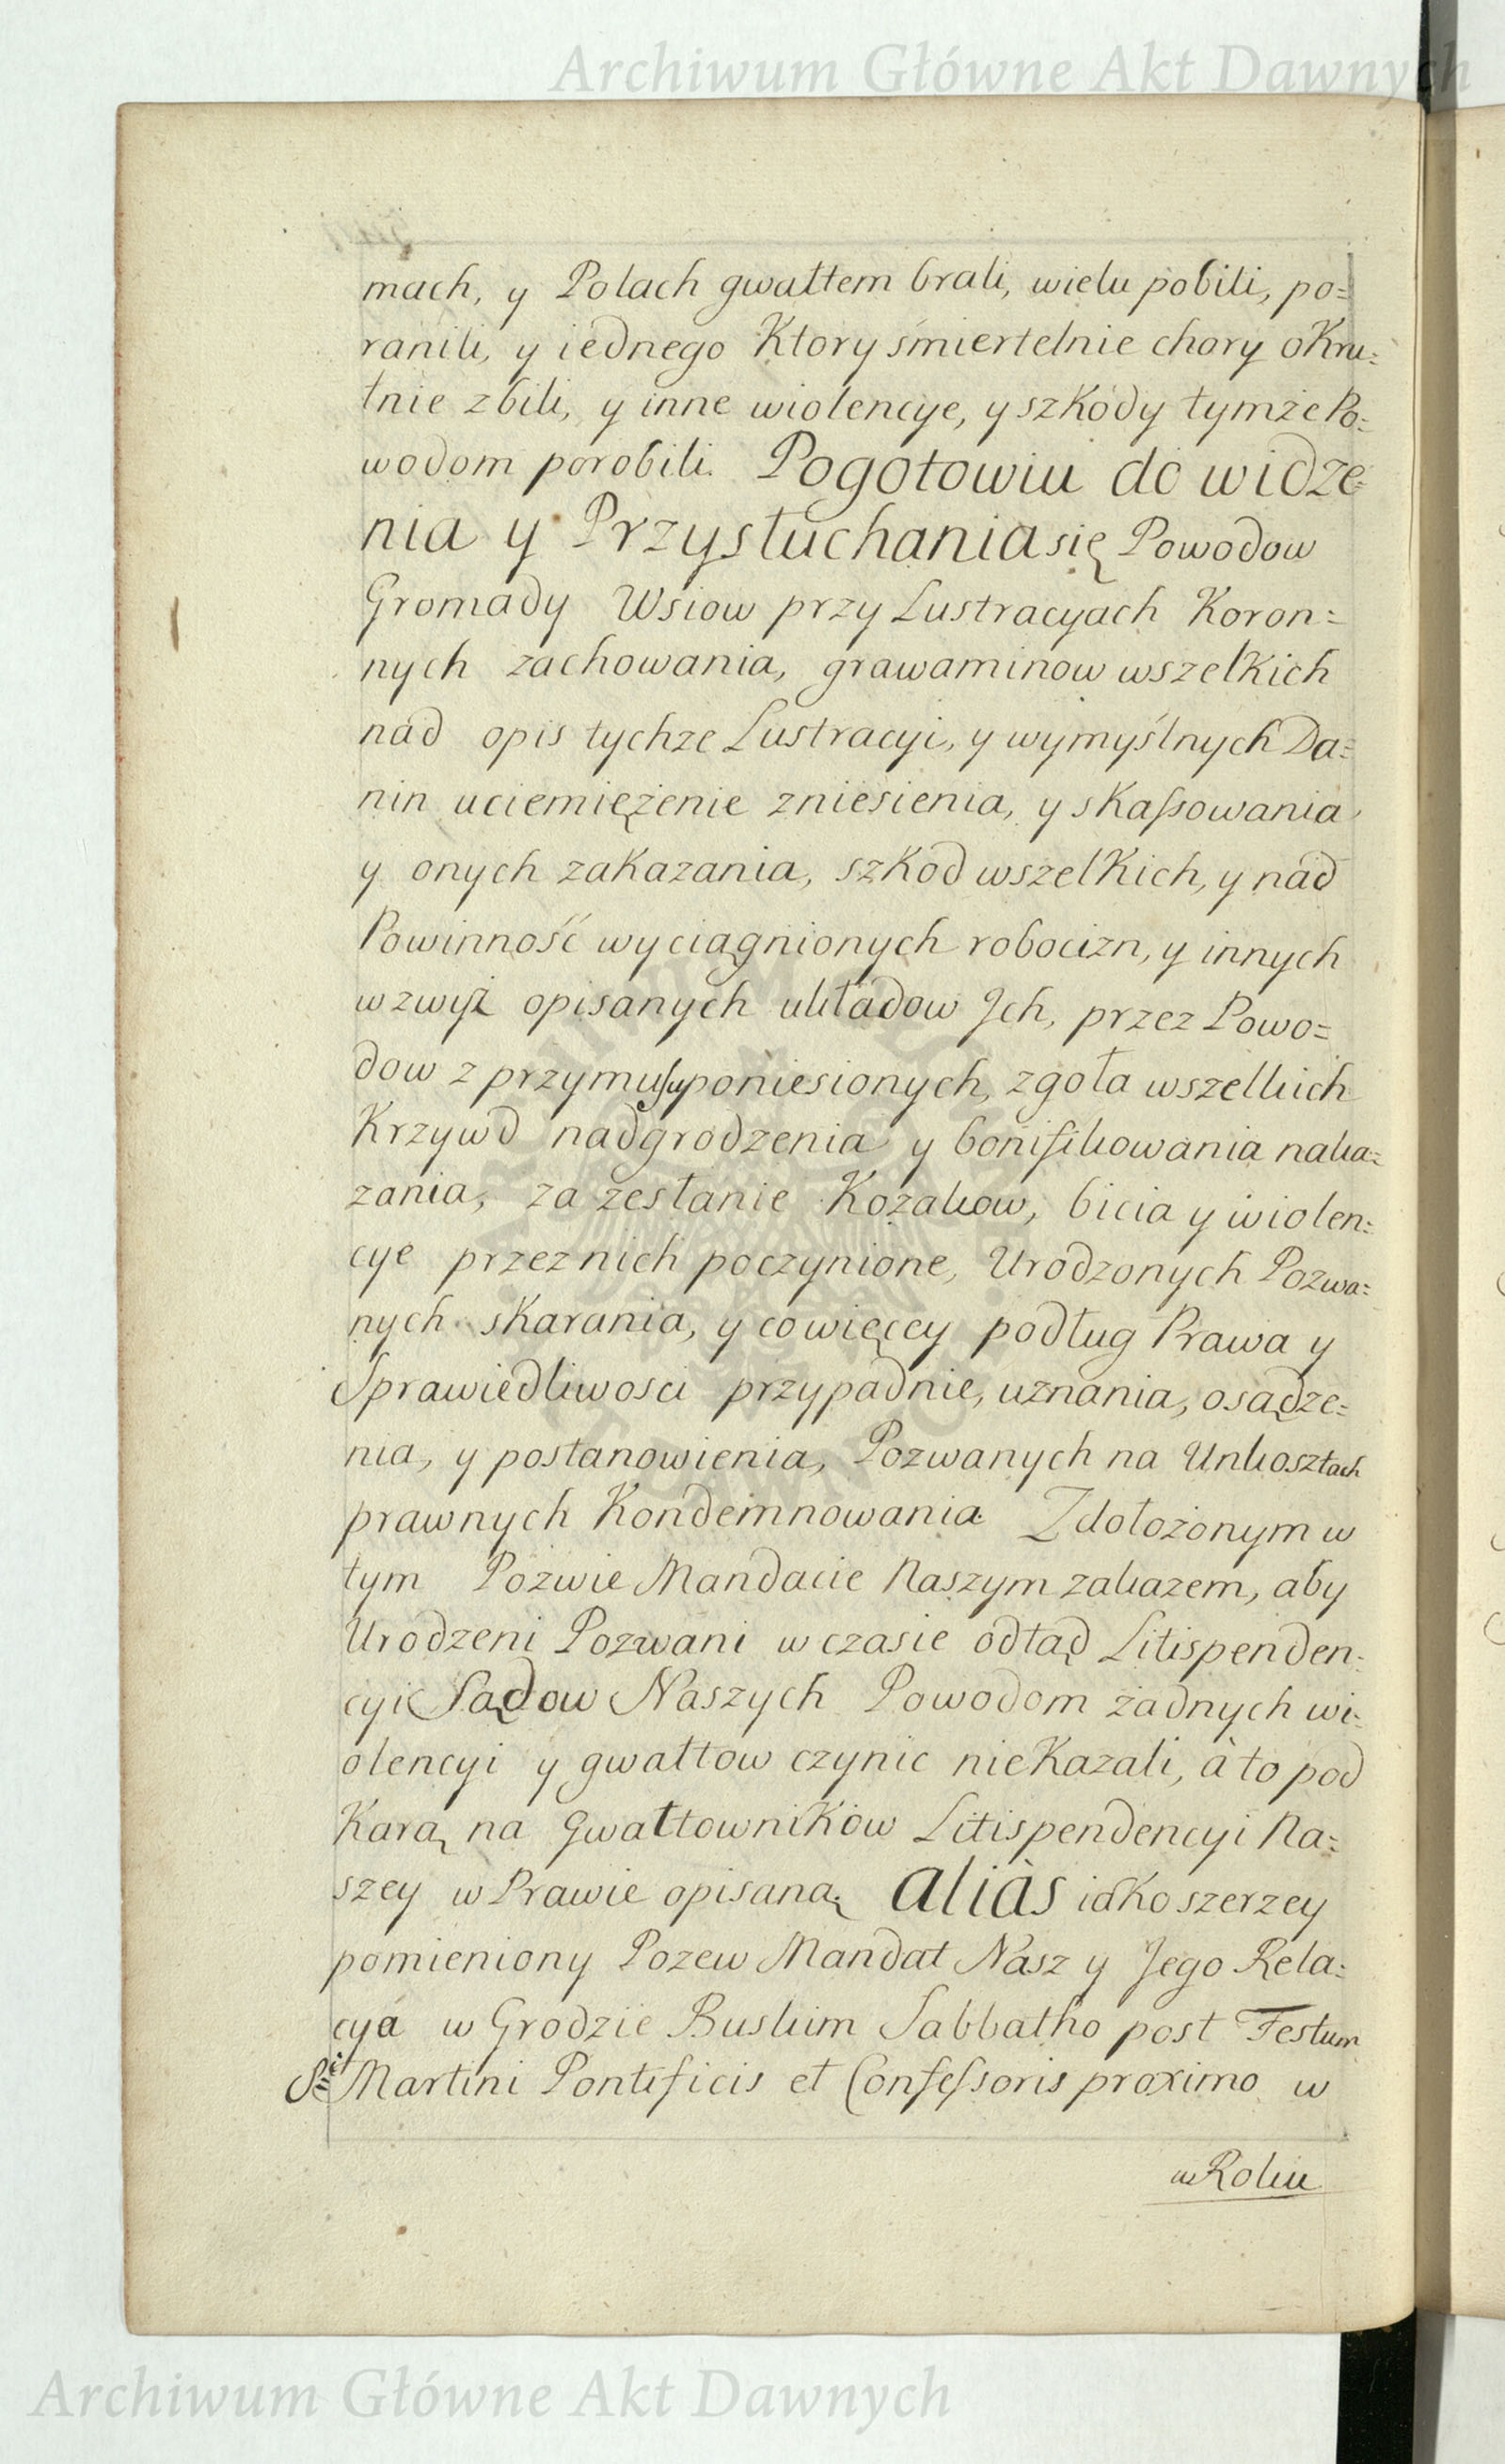 Archiwum Główne Akt Dawnych
mach, y Polach gwałtem brali, wielu pobili, po=
ranili, y iednego Ktory śmiertelnie chory oKru=
tnie zbili, y inne wiolencye, y szKody tymże Po=
wodom porobili. Pogotowiu do widze=
nia y Przysłuchania się Powodow
Gromady Wsiow przy Lustracyach Koron=
nych zachowania, grawaminow wszelKich
nad opis tychże Lustracyi, y wymyślnych Da=
nin uciemiężenie zniesienia, y sKassowania
y onych zaKazania, szKod wszelKich, y nad
Powinność wyciągnionych robocizn, y innych
wzwyż opisanych układow Jch, przez Powo=
dow z przymusu poniesionych, zgoła wszelkich
Krzywd nadgrodzenia y bonifikowania naka=
zania, za zesłanie Kozakow, bicia y wiolen=
cye przez nich poczynione, Urodzonych Pozwa=
nych sKarania, y co więcey podług Prawa y
Sprawiedliwosci przypadnie, uznania, osądze=
nia, y postanowienia, Pozwanych na Unkosztach
prawnych Kondemnowania. Z dołożonym w
tym Pozwie Mandacie Naszym zakazem, aby
Urodzeni Pozwani w czasie odtąd Litispenden=
cyi Sądow Naszych Powodom żadnych wi=
olencyi y gwałtow czynic nieKazali, à to pod
Karą na Gwałtowników Litispendencyi Na=
szey w Prawie opisaną. aliàs iako szerzey
pomieniony Pozew Mandat Nasz y Jego Rela=
cya w Grodzie Buskim Sabbatho post Festum
Sti Martini Pontificis et Confessoris proximo w
w Roku
Archiwum Główne Akt Dawnych